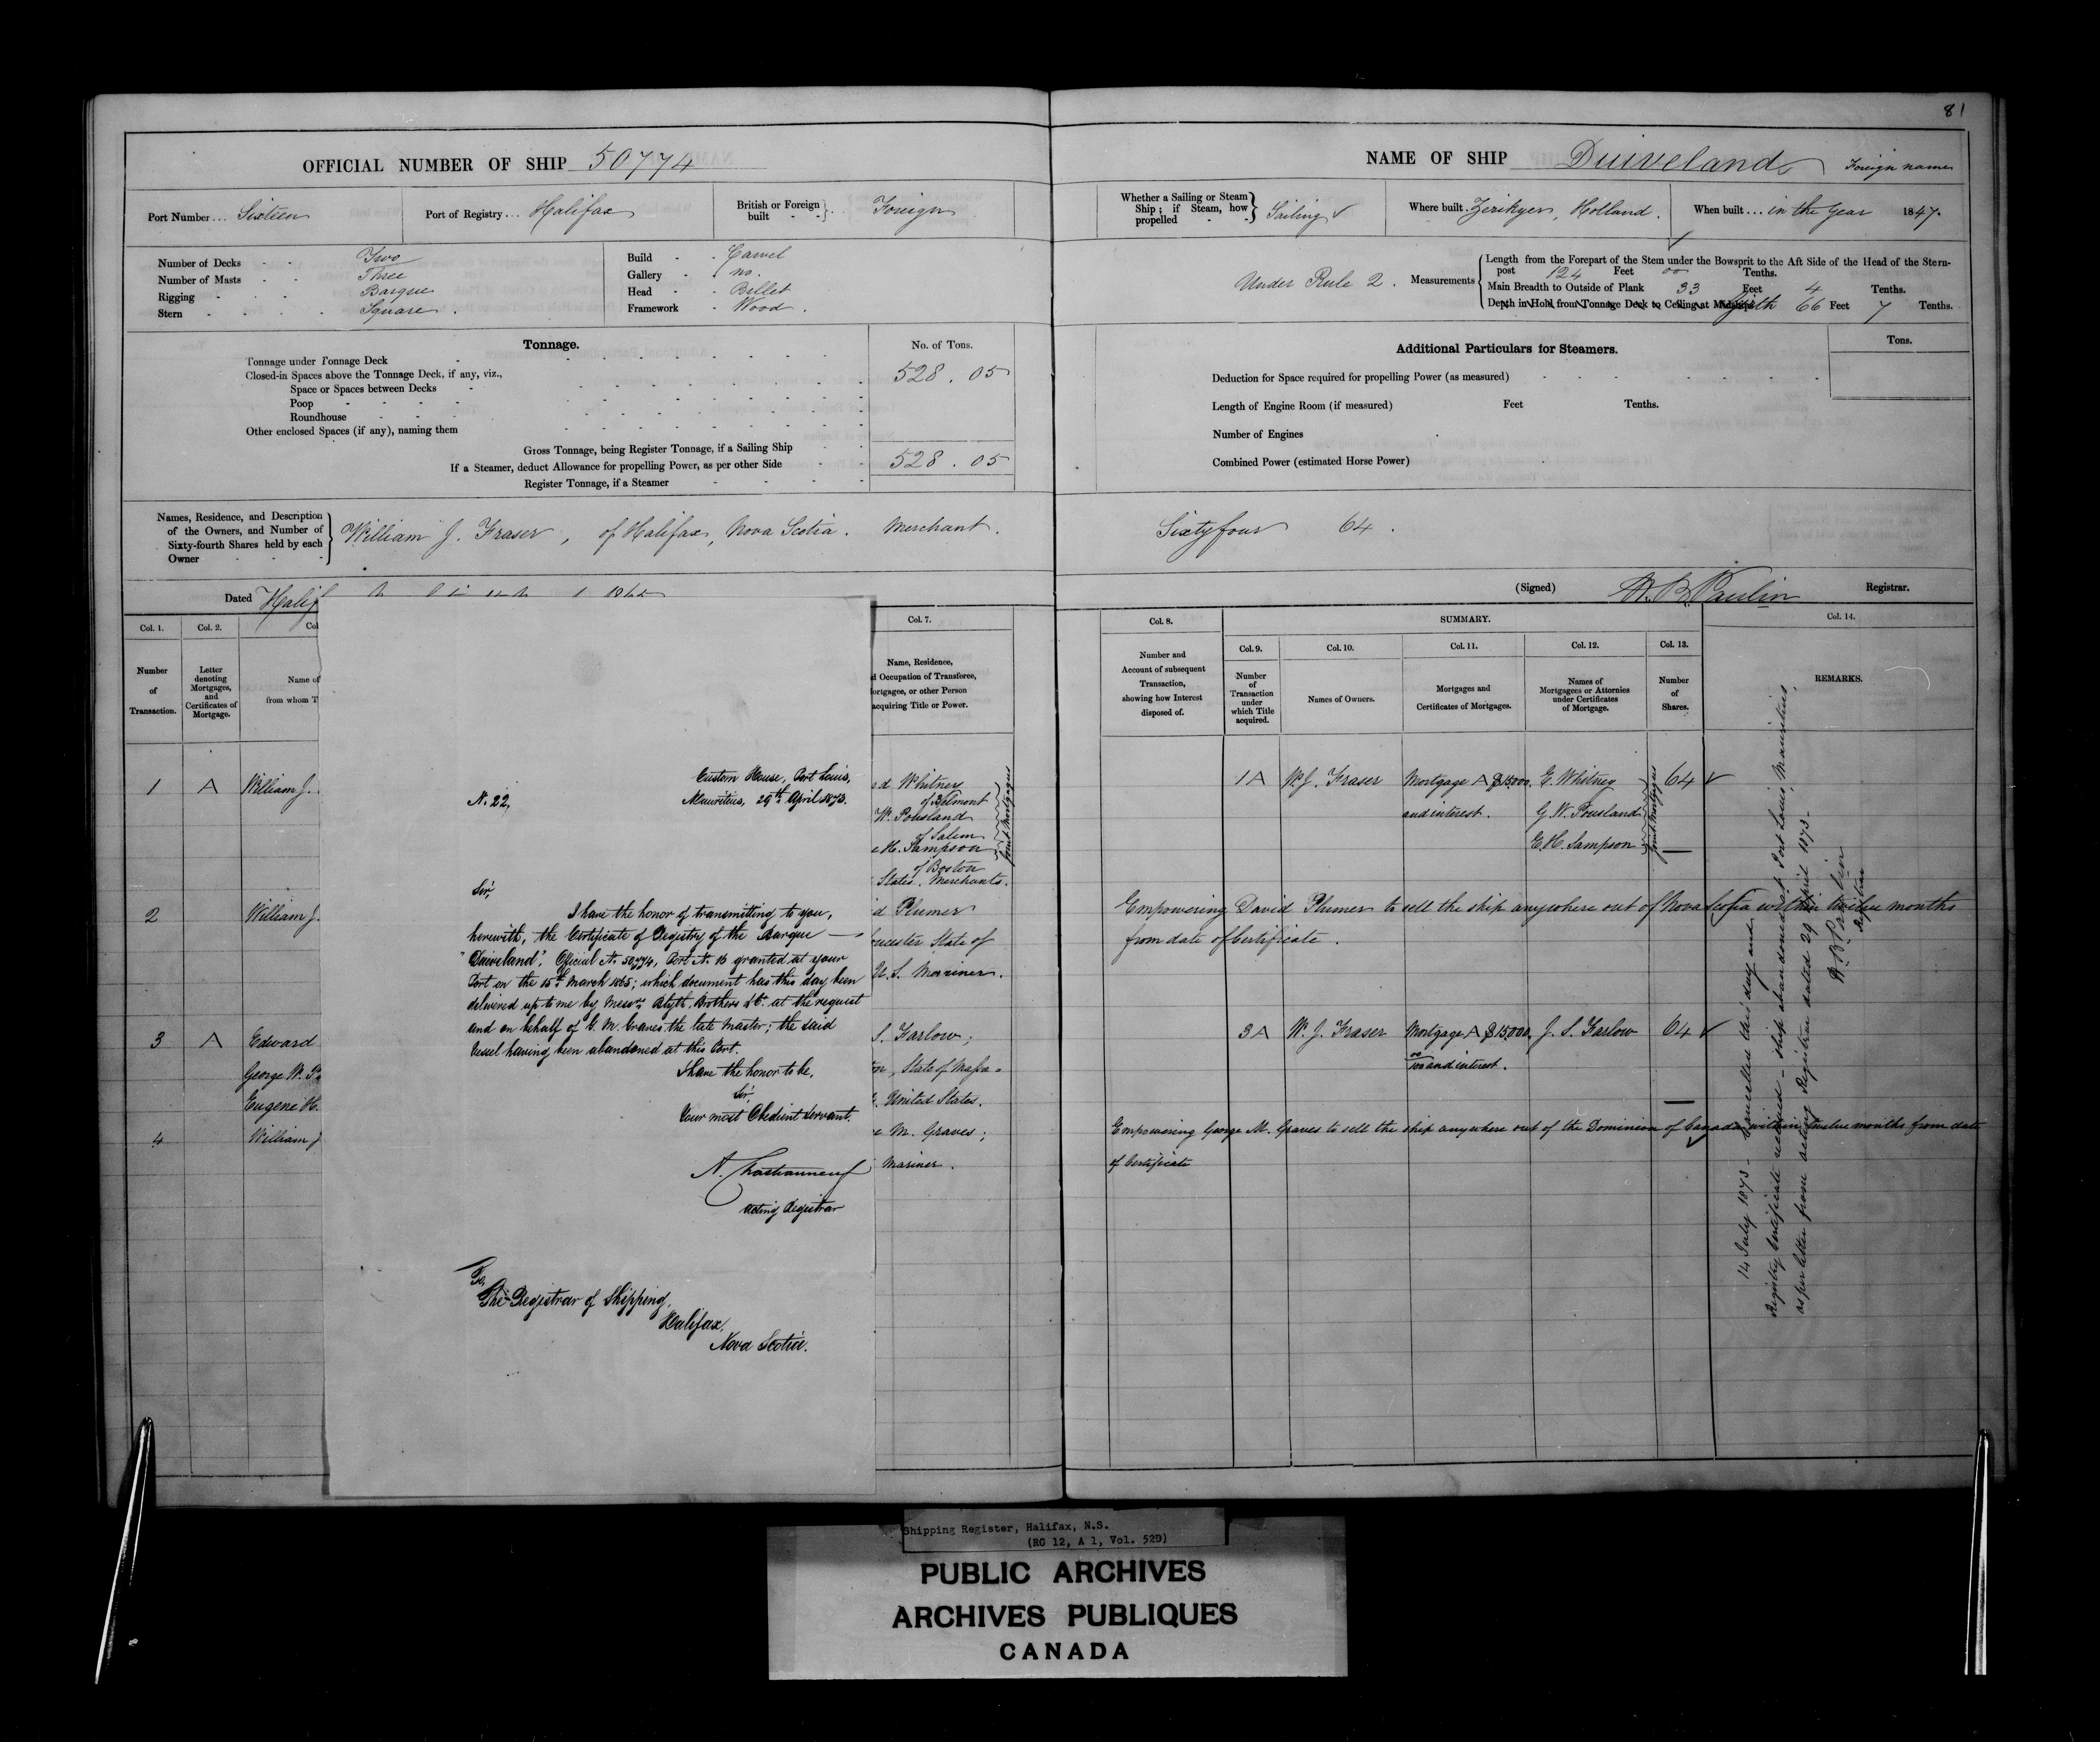 81
OFFICIAL NUMBER OF SHIP 50774
Port Number... Sixteen
Port of Registry... Halifax
British or Foreign built - - } . . Foreign
Number of Decks - - Two
Number of Masts - - Three
Rigging - - - Barque
Stern - - - - Square .
Build - - Carvel
Gallery - - no.
Head - - Billet
Framework - Wood .
Tonnage.
No. of Tons.
Tonnage under Tonnage Deck
Closed-in Spaces above the Tonnage Deck, if any, viz.,
528 . 05
Space or Spaces between Decks
Poop
Roundhouse
Other enclosed Spaces (if any), naming them
Gross Tonnage, being Register Tonnage, if a Sailing Ship
If a Steamer, deduct Allowance for propelling Power, as per other Side
528 . 05
Register Tonnage, if a Steamer
Names, Residence, and Description of the Owners, and Number of Sixty-fourth Shares held by each Owner
William J. Fraser, of Halifax, Nova Scotia. Merchant.
Dated Halif
Col. 1. Col. 2. Col
Number of Transaction.
Letter denoting Mortgages, and Certificates of Mortgage.
Name of
from whom T
Col. 7.
Name, Residence,
d Occupation of Transferee,
ortgagee, or other Person
acquiring Title or Power.
1 A William J.
d Whitney
of Belmont
W. Pousland
of Salem
H. Sampson
of Boston
States. Merchants.
Joint Mortgages
2 William J.
d Plumer
ucester State of
U.S. Mariner.
3 A Edward
George W. P
Eugene H.
S. Farlow;
, State of Massa=
United States.
4 William J
M. Graves;
Mariner.
N. 22,
Custom House, Port Louis,
Mauritius, 29th April 1873.
Sir,
I have the honor of transmitting to you,
herewith, the Certificate of Registry of the Barque —
"Duiveland". Official No. 50774, Port No. 16 granted at your
Port on the 15th March 1865; which document has this day been
delivered up to me by Messrs. Blyth, Brothers & Co. at the request
and on behalf of G. M. Graves the late Master; the said
Vessel having been abandoned at this Port.
I have the honor to be,
Sir,
Your most Obedient Servant.
Acting Registrar
To,
The Registrar of Shipping,
Halifax,
Nova Scotia.
NAME OF SHIP Duiveland Foreign name
Whether a Sailing or Steam Ship; if Steam, how propelled - - } Sailing
Where built. Zerikyer, Holland.
When built ... in the Year 1847.
Under Rule 2.
Measurements
Length from the Forepart of the Stem under the Bowsprit to the Aft Side of the Head of the Stern-
post 124 Feet 00 Tenths.
Main Breadth to Outside of Plank 33 Feet 4 Tenths.
Depth in Hold from Tonnage Deck to Ceiling at Midships Girth 66 Feet 7 Tenths.
Additional Particulars for Steamers.
Tons.
Deduction for Space required for propelling Power (as measured)
Length of Engine Room (if measured) Feet Tenths.
Number of Engines
Combined Power (estimated Horse Power)
Sixty four 64.
(Signed) W. B. Paulin Registrar.
Col. 8.
SUMMARY.
Col. 14.
Col. 9. Col. 10. Col. 11. Col. 12. Col. 13.
Number and Account of subsequent Transaction, showing how Interest disposed of.
Number of Transaction under which Title acquired.
Names of Owners.
Mortgages and Certificates of Mortgages.
Names of Mortgagees or Attornies under Certificates of Mortgage.
Number of Shares.
REMARKS.
1A W. J. Fraser Mortgage A $15000. E. Whitney 64
and interest. G. W. Pousland
E. H. Sampson
Joint Mortgages
Empowering David Plumer to sell the ship anywhere out of Nova Scotia within twelve months
from date of Certificate.
3A W. J. Fraser Mortgage A $15,000. J. S. Farlow 64
00/100 and interest.
Empowering George M. Graves to sell the ship anywhere out of the Dominion of Canada within twelve months from date
of Certificate
14 July 1873 - Cancelled this day and
Registry Certificate received - ship abandoned at Port Louis, Mauritius,
as per letter from acting Registrar dated 29 April 1873 -
W. B. Paulin
Registrar
Shipping Register, Halifax, N.S.
(RG 12, A 1, Vol. 52D)
PUBLIC ARCHIVES
ARCHIVES PUBLIQUES
CANADA